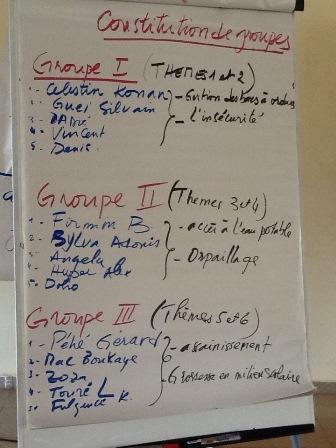 Constitution de groupes
Groupe I (THEMES 1 et 2)
1- Celestin Konan - Gestion des bacs à ordures
2- Guei Silvain
3- - l'insécurité
4- Vincent
5. Denis
Groupe II (Themes 3 et 4)
1- Firmin B - accès à l'eau potable
2- Sylva Adonis
3- Angela - Orpaillage
4- Hyper
5-
Groupe III (Thèmes 5 et 6)
1- Péhé Gérard - assainissement
2- Mac Boukaye
3- - Grossesse en milieu scolaire
4- Touré L
5. Fulgence K.